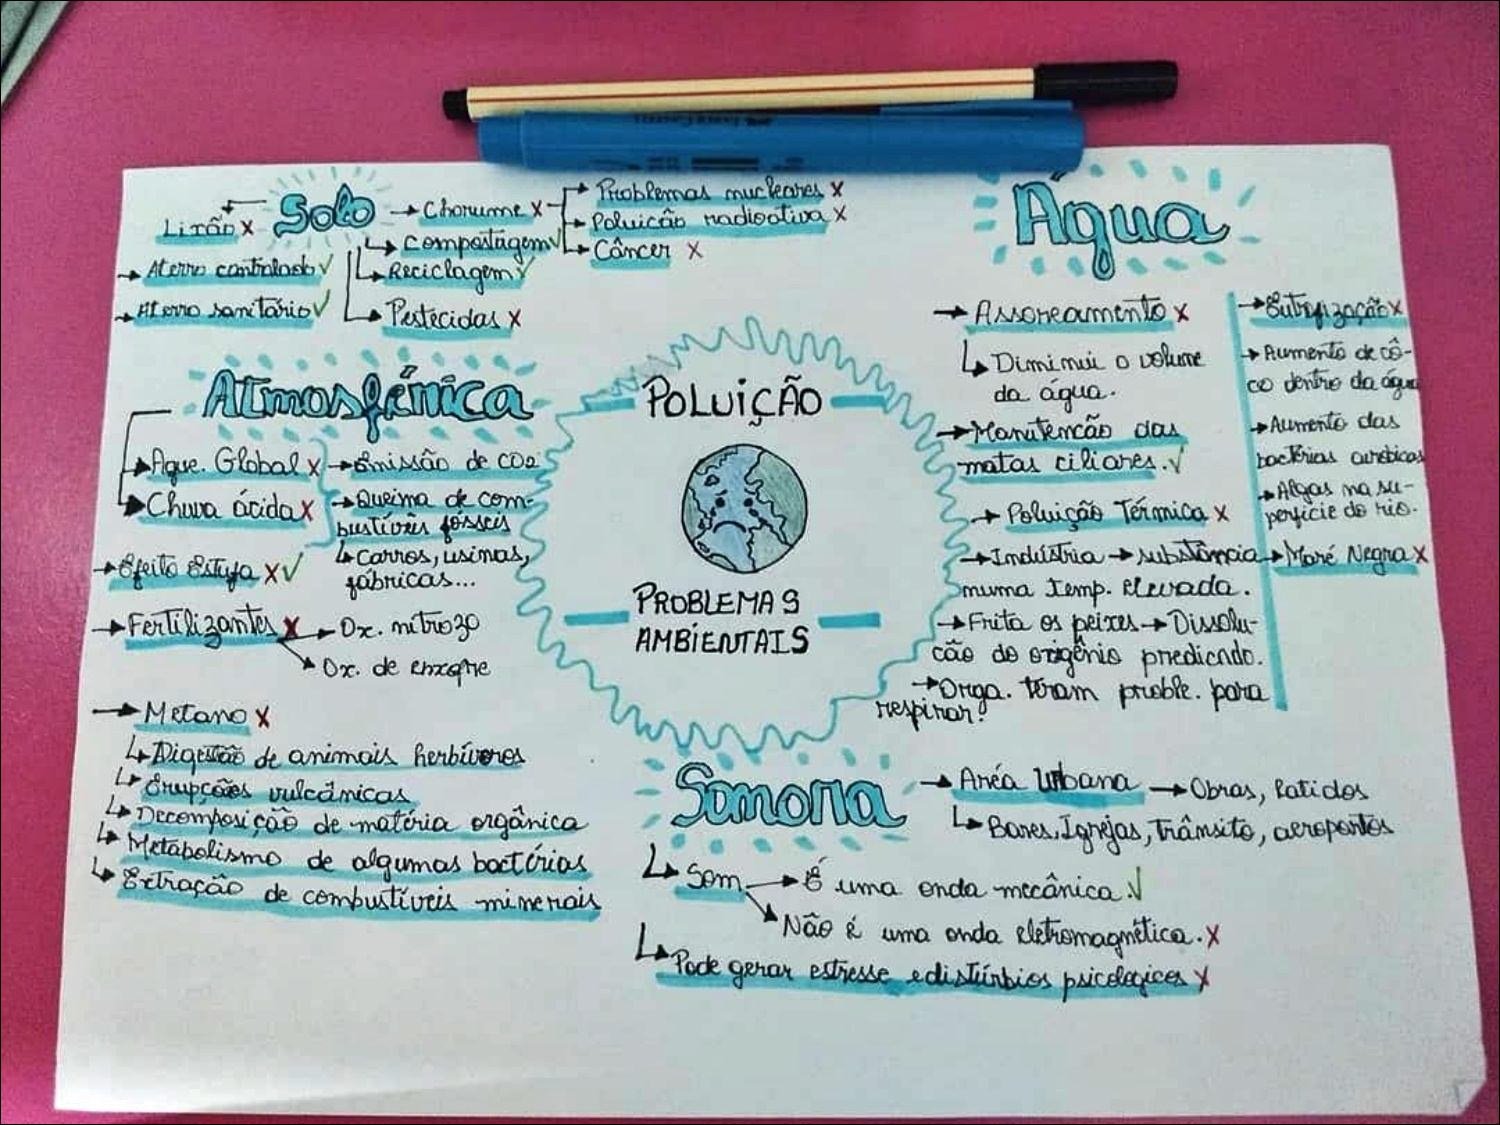 Solo
Lixão X
→ Aterro controlado ✓
→ Aterro sanitário ✓
→ Chorume X
Compostagem ✓
Reciclagem ✓
Pestecidas X
Problemas nucleares X
Poluição radioativa X
Câncer X
Água
→ Assoreamento X
Diminui o volume
da água.
→ Manutenção das
matas ciliares. ✓
→ Poluição Térmica X
→ Indústria → substância
numa temp. elevada.
→ Frita os peixes → Dissolu-
ção do oxigênio
→ Orga. teram proble. para
respirar.
→ Eutrofização X
→ Aumento de cô-
co dentro da água
→ Aumento das
bactérias aeróbicas
→ Algas na su-
perfície do rio.
→ Maré Negra X
Atmosférica
Aque. Global X
Chuva ácida X
→ Emissão de CO2
→ Queima de com-
bustíveis fósseis
Carros, usinas,
fábricas...
→ Efeito Estufa X ✓
→ Fertilizantes X
Ox. nitrozo
Ox. de enxofre
→ Metano X
Digestão de animais herbívoros
Erupções vulcânicas
Decomposição de matéria orgânica
Metabolismo de algumas bactérias
Extração de combustíveis minerais
POLUIÇÃO
PROBLEMAS
AMBIENTAIS
Sonora
→ Aréa Urbana → Obras, latidos
Bares, Igrejas, trânsito, aeroportos
Som → É uma onda mecânica. ✓
Não é uma onda eletromagnética. X
Pode gerar estresse e distúrbios psicologicos X